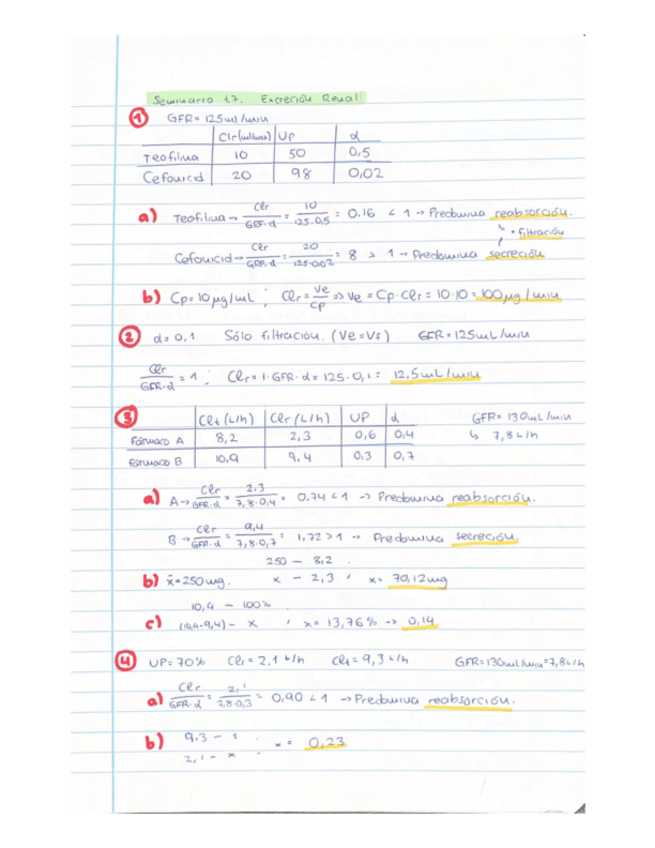 Seminario t7. Excreción Renal
① GFR = 125 ml/min
Clr (ml/min) UP α
Teofilina 10 50 0,5
Cefonicid 20 98 0,02
a) Teofilina → Clr/GFR·α = 10/125·0,5 = 0,16 < 1 → Predomina reabsorción.
+ filtración
Cefonicid → Clr/GFR·α = 20/125·0,02 = 8 > 1 → Predomina secreción
b) Cp = 10 μg/ml ; Clr = Ve/Cp ⇒ Ve = Cp·Clr = 10·10 = 100 μg/min
② α = 0,1 Sólo filtración. (Ve = Vf) GFR = 125 mL/min
Clr/GFR·α = 1 ; Clr = 1·GFR·α = 125·0,1 = 12,5 mL/min
③ Clt (L/h) Clr (L/h) UP α GFR = 130 mL/min
Fármaco A 8,2 2,3 0,6 0,4 ↳ 7,8 L/h
Fármaco B 10,9 9,4 0,3 0,7
a) A → Clr/GFR·α = 2,3/7,8·0,4 = 0,74 < 1 → Predomina reabsorción.
B → Clr/GFR·α = 9,4/7,8·0,7 = 1,72 > 1 → Predomina secreción
250 — 8,2
b) x̄ = 250 mg. x — 2,3 ; x = 70,12 mg
10,9 — 100%
c) (10,9-9,4) — x ; x = 13,76% → 0,14
④ UP = 70% Clr = 2,1 L/h Clt = 9,3 L/h GFR = 130 mL/min = 7,8 L/h
a) Clr/GFR·α = 2,1/7,8·0,3 = 0,90 < 1 → Predomina reabsorción.
b) 9,3 — 1
2,1 — x ; x = 0,23